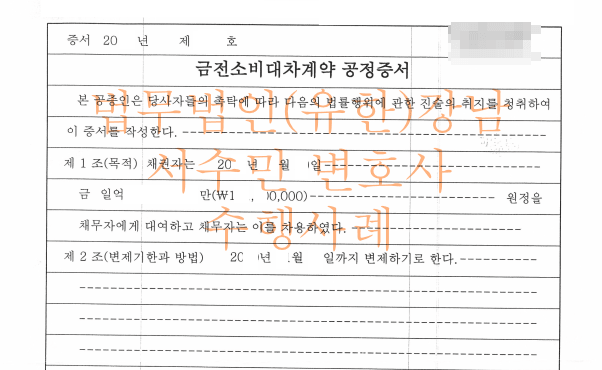 증서 20 년 제 호
금전소비대차계약 공정증서
본 공증인은 당사자들의 촉탁에 따라 다음의 법률행위에 관한 진술의 취지를 청취하여
이 증서를 작성한다.
법무법인(유한)장남
제 1 조(목적) 채권자는 20 년 월 일
서주민 변호사
금 일억 만(₩1 , 00,000) 원정을
채무자에게 대여하고 채무자는 이를 차용하였다.
수행사례
제 2 조(변제기한과 방법) 20 년 월 일까지 변제하기로 한다.